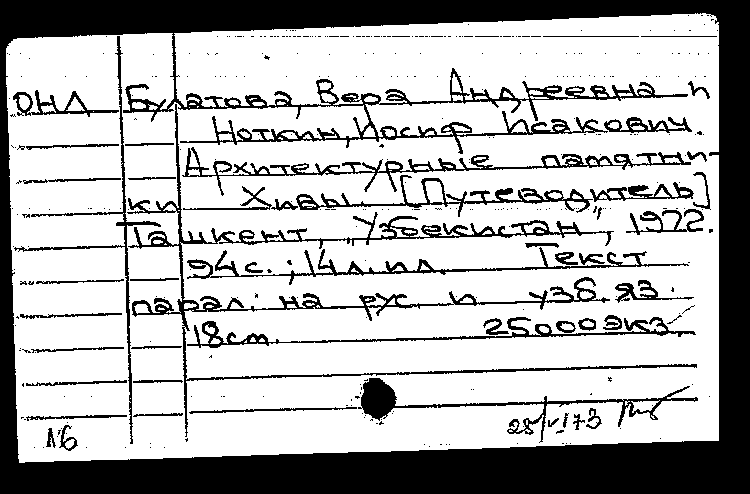 ОНЛ Булатова, Вера Андреевна и
Ноткин, Иосиф Исакович.
Архитектурные памятни-
ки Хивы. [Путеводитель]
Ташкент, „Узбекистан", 1972.
94 с.; 14 л. ил. Текст
парал.: на рус. и узб. яз.
18 см. 25000 экз.
28/VI 73
16